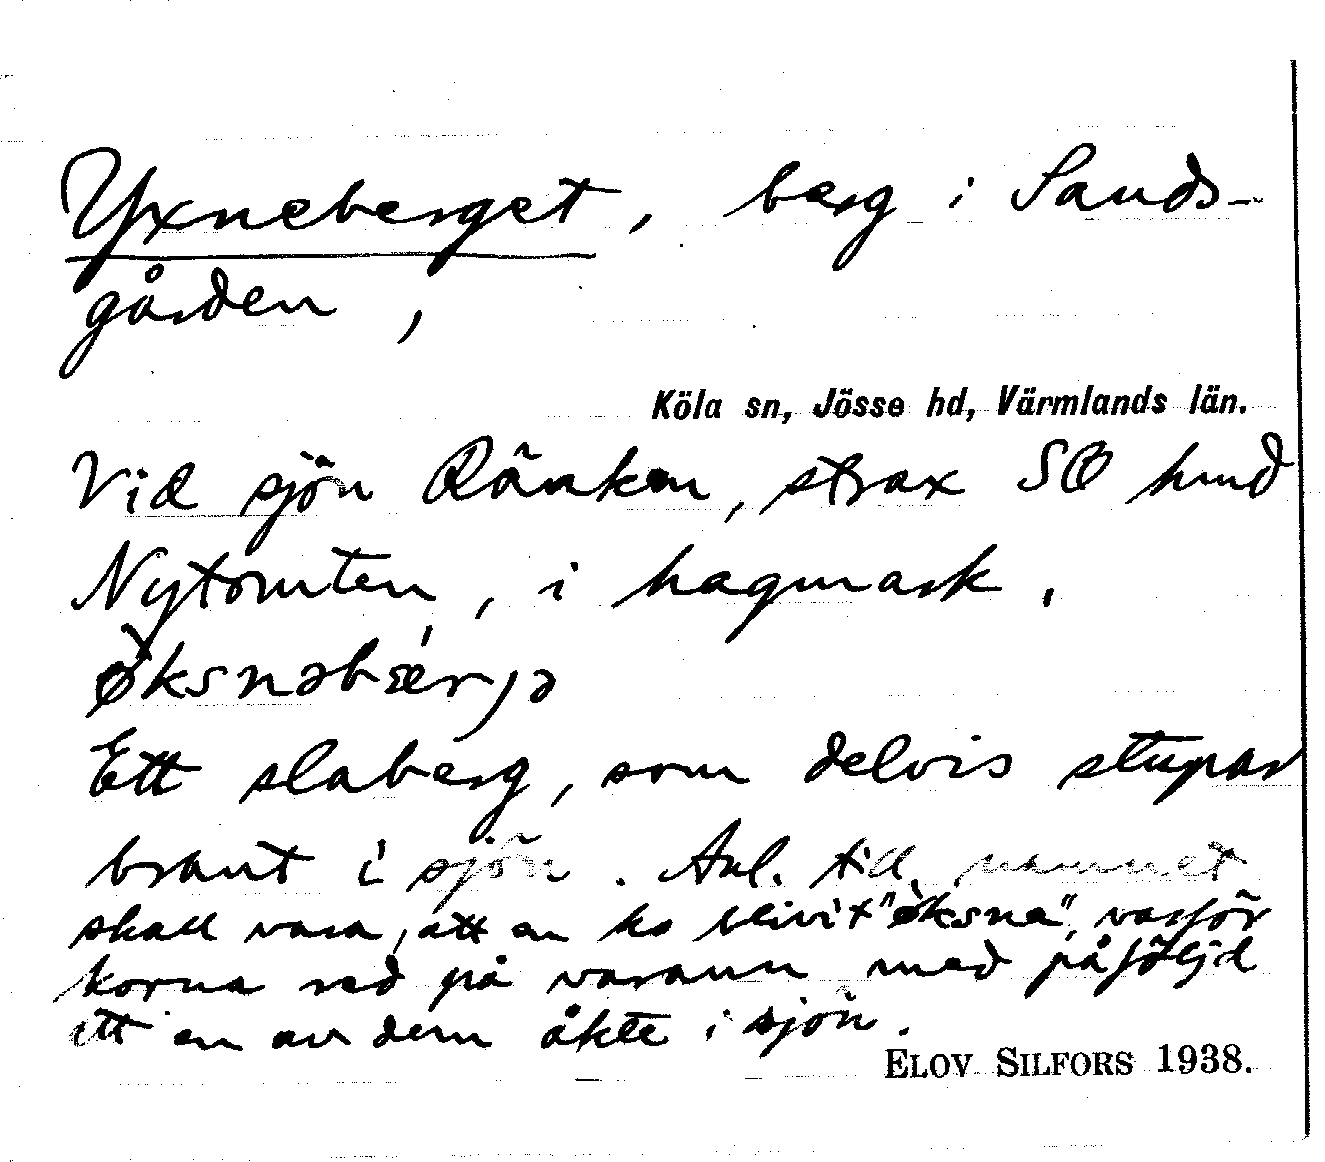 Yxneberget, berg i Sands-
gården,
Köla sn, Jösse hd, Värmlands län.
Vid sjön Ränken, strax SO hmd
Nytomten, i hagmark.
Ett slaberg, som delvis stupar
brant i sjön. Anl. till namnet
skall vara, att en ko blivit "øksna", varför
korna red på varann med påföljd
att en av dem åkte i sjön.
ELOV SILFORS 1938.